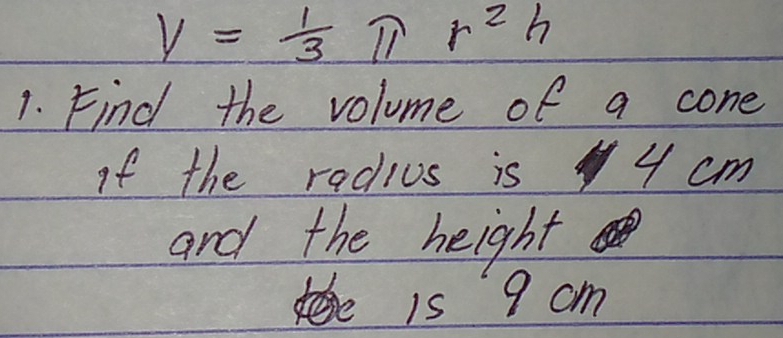 V = 1/3 π r² h
1. Find the volume of a cone
if the radius is 4 cm
and the height
is 9 cm